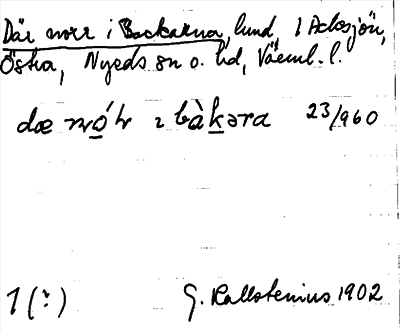 Där norr i Backarna, lund, 1 Acksjön,
Östra, Nyeds sn o. hd, Värml. l.
dœ nór ı bàkəra 23/960
1(?) G. Kallstenius 1902